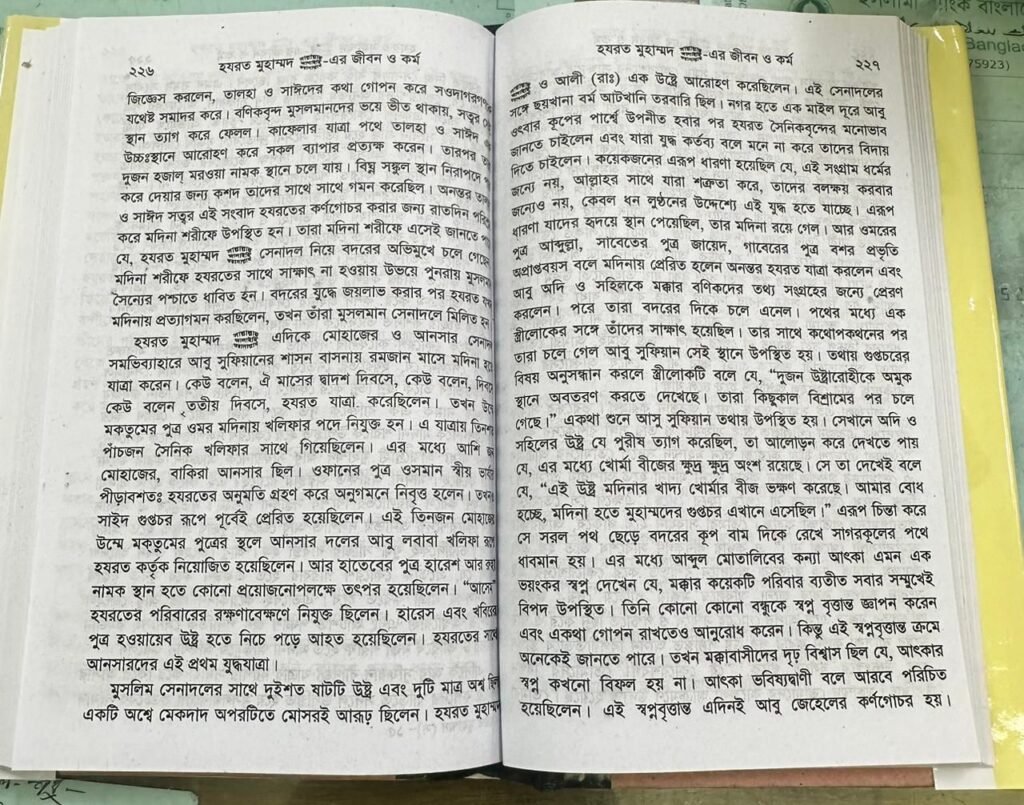 ২২৬
হযরত মুহাম্মদ -এর জীবন ও কর্ম
জিজ্ঞেস করলেন, তালহা ও সাঈদের কথা গোপন করে সওদাগরগণকে
যথেষ্ট সমাদর করে। বণিকবৃন্দ মুসলমানদের ভয়ে ভীত থাকায়, সত্বর
স্থান ত্যাগ করে ফেলল। কাফেলার যাত্রা পথে তালহা ও সাঈদ
উচ্চঃস্থানে আরোহণ করে সকল ব্যাপার প্রত্যক্ষ করেন। তারপর
দুজন হজাল মরওয়া নামক স্থানে চলে যায়। বিঘ্ন সঙ্কুল স্থান নিরাপদে
করে দেয়ার জন্য কশদ তাদের সাথে সাথে গমন করেছিল। অনন্তর
ও সাঈদ সত্বর এই সংবাদ হযরতের কর্ণগোচর করার জন্য রাতদিন
করে মদিনা শরীফে উপস্থিত হন। তারা মদিনা শরীফে এসেই জানতে
যে, হযরত মুহাম্মদ সেনাদল নিয়ে বদরের অভিমুখে চলে গেছেন
মদিনা শরীফে হযরতের সাথে সাক্ষাৎ না হওয়ায় উভয়ে পুনরায়
সৈন্যের পশ্চাতে ধাবিত হন। বদরের যুদ্ধে জয়লাভ করার পর হযরত
মদিনায় প্রত্যাগমন করছিলেন, তখন তাঁরা মুসলমান সেনাদলে মিলিত হন
হযরত মুহাম্মদ এদিকে মোহাজের ও আনসার
সমভিব্যাহারে আবু সুফিয়ানের শাসন বাসনায় রমজান মাসে মদিনা
যাত্রা করেন। কেউ বলেন, ঐ মাসের দ্বাদশ দিবসে, কেউ বলেন,
কেউ বলেন তৃতীয় দিবসে, হযরত যাত্রা করেছিলেন। তখন
মকতুমের পুত্র ওমর মদিনায় খলিফার পদে নিযুক্ত হন। এ যাত্রায়
পাঁচজন সৈনিক খলিফার সাথে গিয়েছিলেন। এর মধ্যে আশি
মোহাজের, বাকিরা আনসার ছিল। ওফানের পুত্র ওসমান স্বীয়
পীড়াবশতঃ হযরতের অনুমতি গ্রহণ করে অনুগমনে নিবৃত্ত হলেন।
সাইদ গুপ্তচর রূপে পূর্বেই প্রেরিত হয়েছিলেন। এই তিনজন মোহাজের
উম্মে মকতুমের পুত্রের স্থলে আনসার দলের আবু লবাবা খলিফা
হযরত কর্তৃক নিয়োজিত হয়েছিলেন। আর হাতেবের পুত্র হারেশ আর
নামক স্থান হতে কোনো প্রয়োজনোপলক্ষে তৎপর হয়েছিলেন।
হযরতের পরিবারের রক্ষণাবেক্ষণে নিযুক্ত ছিলেন। হারেস এবং
পুত্র হওয়ায়েব উষ্ট্র হতে নিচে পড়ে আহত হয়েছিলেন। হযরতের সাথে
আনসারদের এই প্রথম যুদ্ধযাত্রা।
মুসলিম সেনাদলের সাথে দুইশত ষাটটি উষ্ট্র এবং দুটি মাত্র অশ্ব ছিল
একটি অশ্বে মেকদাদ অপরটিতে মোসরই আরূঢ় ছিলেন। হযরত মুহাম্মদ
হযরত মুহাম্মদ -এর জীবন ও কর্ম
২২৭
ও আলী (রাঃ) এক উষ্ট্রে আরোহণ করেছিলেন। এই সেনাদলের
সঙ্গে ছয়খানা বর্ম আটখানি তরবারি ছিল। নগর হতে এক মাইল দূরে আবু
ওৎবার কূপের পার্শ্বে উপনীত হবার পর হযরত সৈনিকবৃন্দের মনোভাব
জানতে চাইলেন এবং যারা যুদ্ধ কর্তব্য বলে মনে না করে তাদের বিদায়
দিতে চাইলেন। কয়েকজনের এরূপ ধারণা হয়েছিল যে, এই সংগ্রাম ধর্মের
জন্যে নয়, আল্লাহর সাথে যারা শত্রুতা করে, তাদের বলক্ষয় করবার
জন্যেও নয়, কেবল ধন লুণ্ঠনের উদ্দেশ্যে এই যুদ্ধ হতে যাচ্ছে। এরূপ
ধারণা যাদের হৃদয়ে স্থান পেয়েছিল, তার মদিনা রয়ে গেল। আর ওমরের
পুত্র আব্দুল্লা, সাবেতের পুত্র জায়েদ, গাবেরের পুত্র বশর প্রভৃতি
অপ্রাপ্তবয়স বলে মদিনায় প্রেরিত হলেন অনন্তর হযরত যাত্রা করলেন এবং
আবু অদি ও সহিলকে মক্কার বণিকদের তথ্য সংগ্রহের জন্যে প্রেরণ
করলেন। পরে তারা বদরের দিকে চলে এনেল। পথের মধ্যে এক
স্ত্রীলোকের সঙ্গে তাঁদের সাক্ষাৎ হয়েছিল। তার সাথে কথোপকথনের পর
তারা চলে গেল আবু সুফিয়ান সেই স্থানে উপস্থিত হয়। তথায় গুপ্তচরের
বিষয় অনুসন্ধান করলে স্ত্রীলোকটি বলে যে, “দুজন উষ্ট্রারোহীকে অমুক
স্থানে অবতরণ করতে দেখেছে। তারা কিছুকাল বিশ্রামের পর চলে
গেছে।” একথা শুনে আসু সুফিয়ান তথায় উপস্থিত হয়। সেখানে অদি ও
সহিলের উষ্ট্র যে পুরীষ ত্যাগ করেছিল, তা আলোড়ন করে দেখতে পায়
যে, এর মধ্যে খোর্মা বীজের ক্ষুদ্র ক্ষুদ্র অংশ রয়েছে। সে তা দেখেই বলে
যে, “এই উষ্ট্র মদিনার খাদ্য খোর্মার বীজ ভক্ষণ করেছে। আমার বোধ
হচ্ছে, মদিনা হতে মুহাম্মদের গুপ্তচর এখানে এসেছিল।” এরূপ চিন্তা করে
সে সরল পথ ছেড়ে বদরের কূপ বাম দিকে রেখে সাগরকূলের পথে
ধাবমান হয়। এর মধ্যে আব্দুল মোতালিবের কন্যা আৎকা এমন এক
ভয়ংকর স্বপ্ন দেখেন যে, মক্কার কয়েকটি পরিবার ব্যতীত সবার সম্মুখেই
বিপদ উপস্থিত। তিনি কোনো কোনো বন্ধুকে স্বপ্ন বৃত্তান্ত জ্ঞাপন করেন
এবং একথা গোপন রাখতেও আনুরোধ করেন। কিন্তু এই স্বপ্নবৃত্তান্ত ক্রমে
অনেকেই জানতে পারে। তখন মক্কাবাসীদের দৃঢ় বিশ্বাস ছিল যে, আৎকার
স্বপ্ন কখনো বিফল হয় না। আৎকা ভবিষ্যদ্বাণী বলে আরবে পরিচিত
হয়েছিলেন। এই স্বপ্নবৃত্তান্ত এদিনই আবু জেহেলের কর্ণগোচর হয়।
75923)